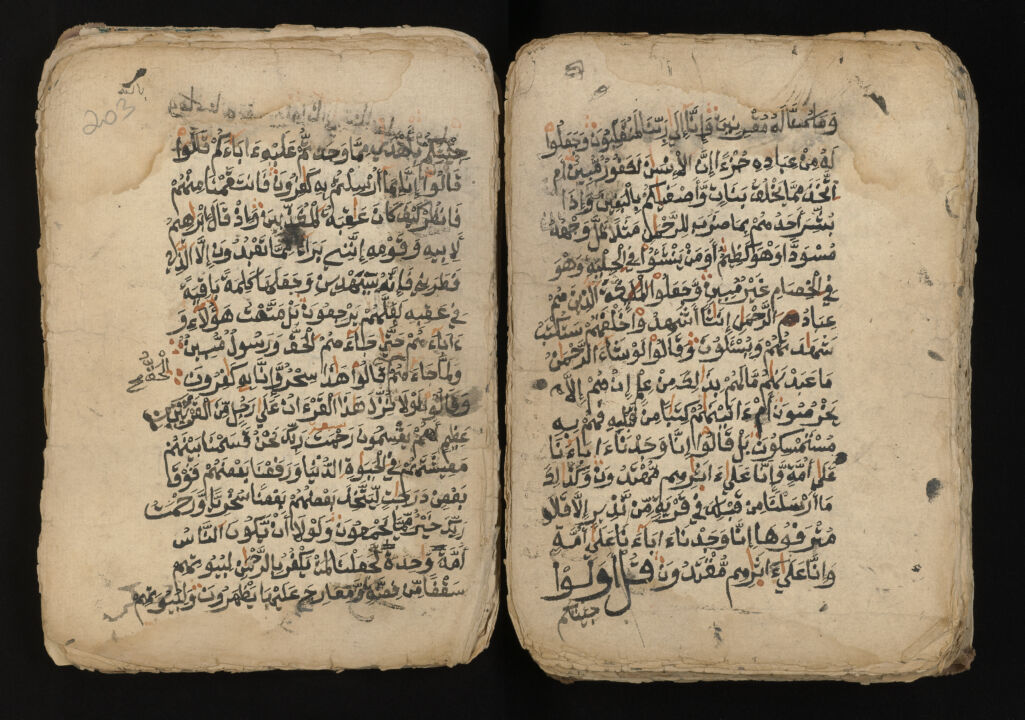 وما كنا له مقرنين وإنا إلى ربنا لمنقلبون وجعلوا
له من عباده جزءا إن الإنسن لكفور مبين أم
اتخذ مما يخلق بنات وأصفيكم بالبنين وإذا
بشر أحدهم بما ضرب للرحمن مثلا ظل وجهه
مسودا وهو كظيم أومن ينشؤا في الحلية وهو
في الخصام غير مبين وجعلوا الملئكة الذين هم
عبد الرحمن إنثا أشهدوا خلقهم ستكتب
شهدتهم ويسئلون وقالوا لو شاء الرحمن
ما عبدنهم ما لهم بذلك من علم إن هم إلا
يخرصون أم ءاتينهم كتبا من قبله فهم به
مستمسكون بل قالوا إنا وجدنا ءاباءنا
على أمة وإنا على ءاثرهم مهتدون وكذلك
ما أرسلنا من قبلك في قرية من نذير إلا قال
مترفوها إنا وجدنا ءاباءنا على أمة
وإنا على ءاثرهم مقتدون قل أولوا
جئتكم
203
جئتكم بأهدى مما وجدتم عليه ءاباءكم قالوا
قالوا إنا بما أرسلتم به كفرون فانتقمنا منهم
فانظر كيف كان عقبة المكذبين وإذ قال إبرهيم
لأبيه وقومه إنني براء مما تعبدون إلا الذي
فطرني فإنه سيهدين وجعلها كلمة باقية
في عقبه لعلهم يرجعون بل متعت هؤلاء و
ءاباءهم حتى جاءهم الحق ورسول مبين
ولما جاءهم قالوا هذا سحر وإنا به كفرون
الحق
وقالوا لولا نزل هذا القرءان على رجل من القريتين
عظيم أهم يقسمون رحمت ربك نحن قسمنا بينهم
معيشتهم في الحيوة الدنيا ورفعنا بعضهم فوق
بعض درجت ليتخذ بعضهم بعضا سخريا ورحمت
ربك خير مما يجمعون ولولا أن يكون الناس
أمة وحدة لجعلنا لمن يكفر بالرحمن لبيوتهم
سقفا من فضة ومعارج عليها يظهرون ولبيوتهم